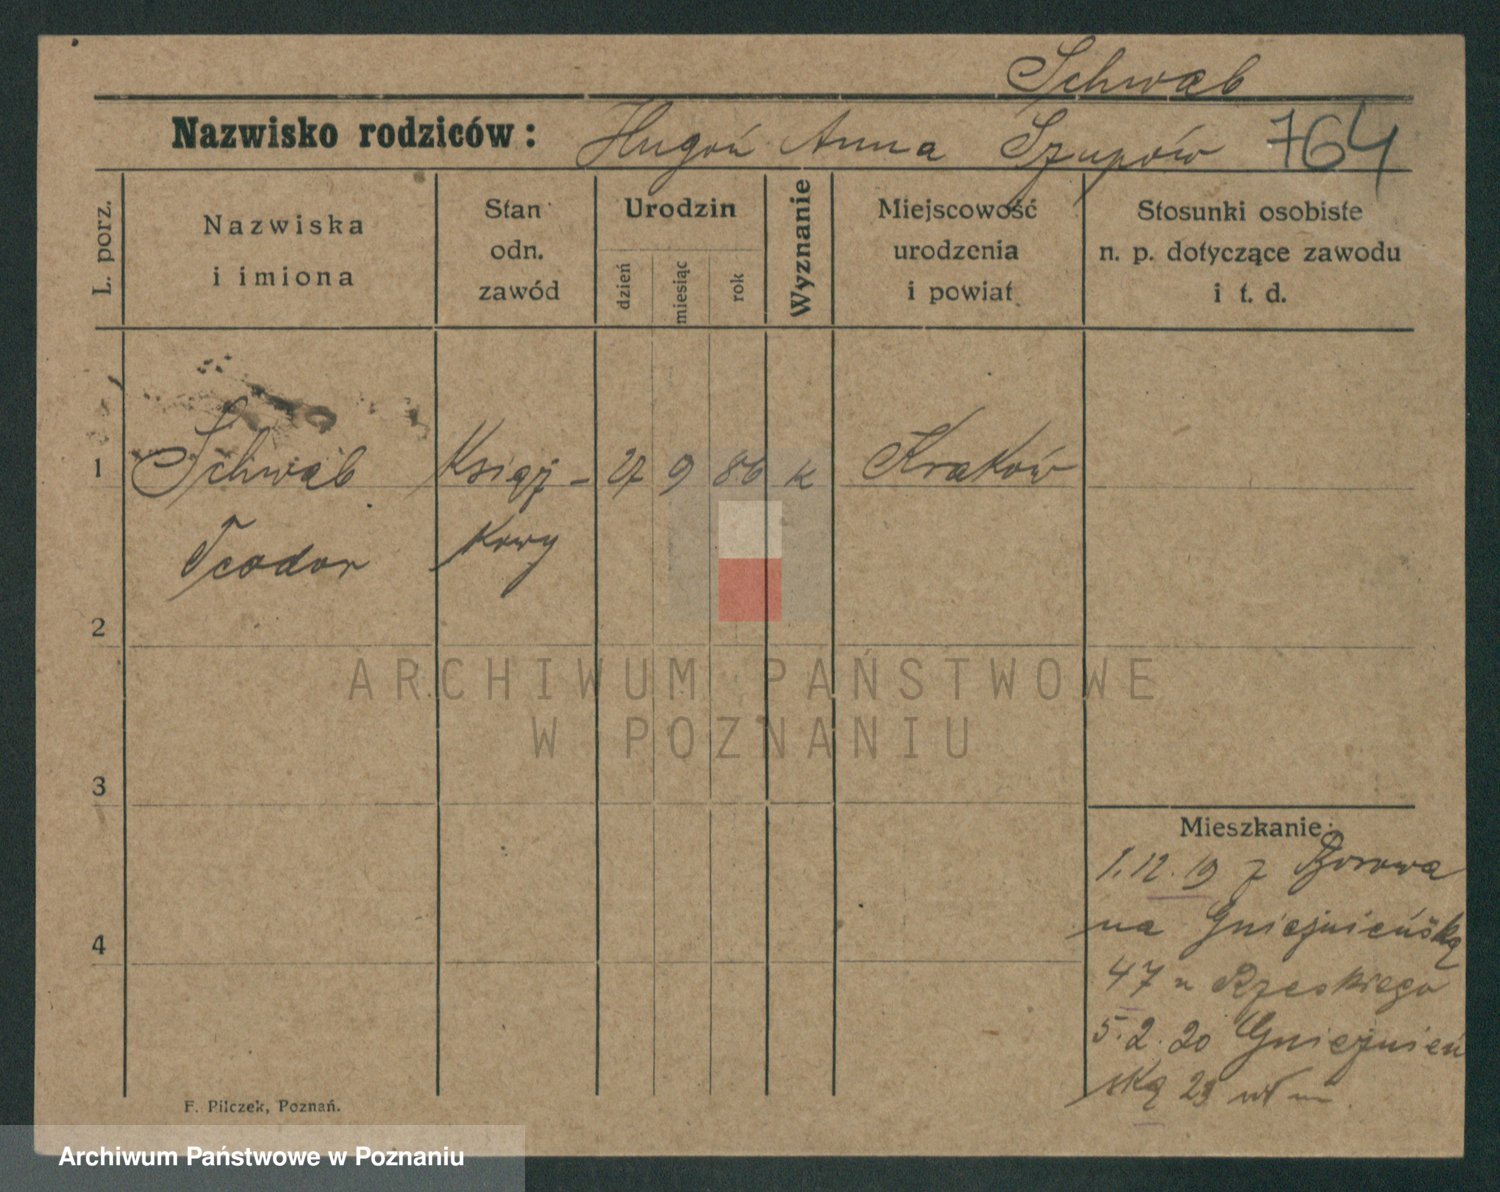 Schwab
Nazwisko rodziców: Hugoń Anna Szupów 764
L. porz.
Nazwiska
i imiona
Stan
odn.
zawód
Urodzin
dzień
miesiąc
rok
Wyznanie
Miejscowość
urodzenia
i powiat
Stosunki osobiste
n. p. dotyczące zawodu
i t. d.
1 Schwab Księż- 27 9 86 k Kraków
Teodor kowy
2
ARCHIWUM PAŃSTWOWE
W POZNANIU
3
Mieszkanie:
1.12.19 z Borowa
na Gnieźnieńską
4
47 u Rzeskiego
5.2.20 Gnieźnień
ską 23 wł m
F. Pilczek, Poznań.
Archiwum Państwowe w Poznaniu